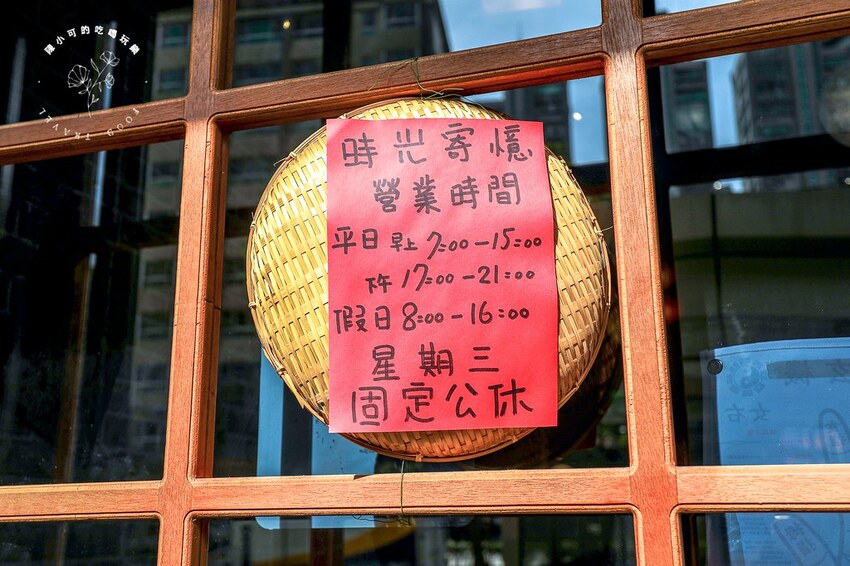 陳小可的吃喝玩樂
FOOD TRAVEL
時光寄憶
營業時間
平日早上 7:00-15:00
下午 17:00-21:00
假日 8:00-16:00
星期三
固定公休